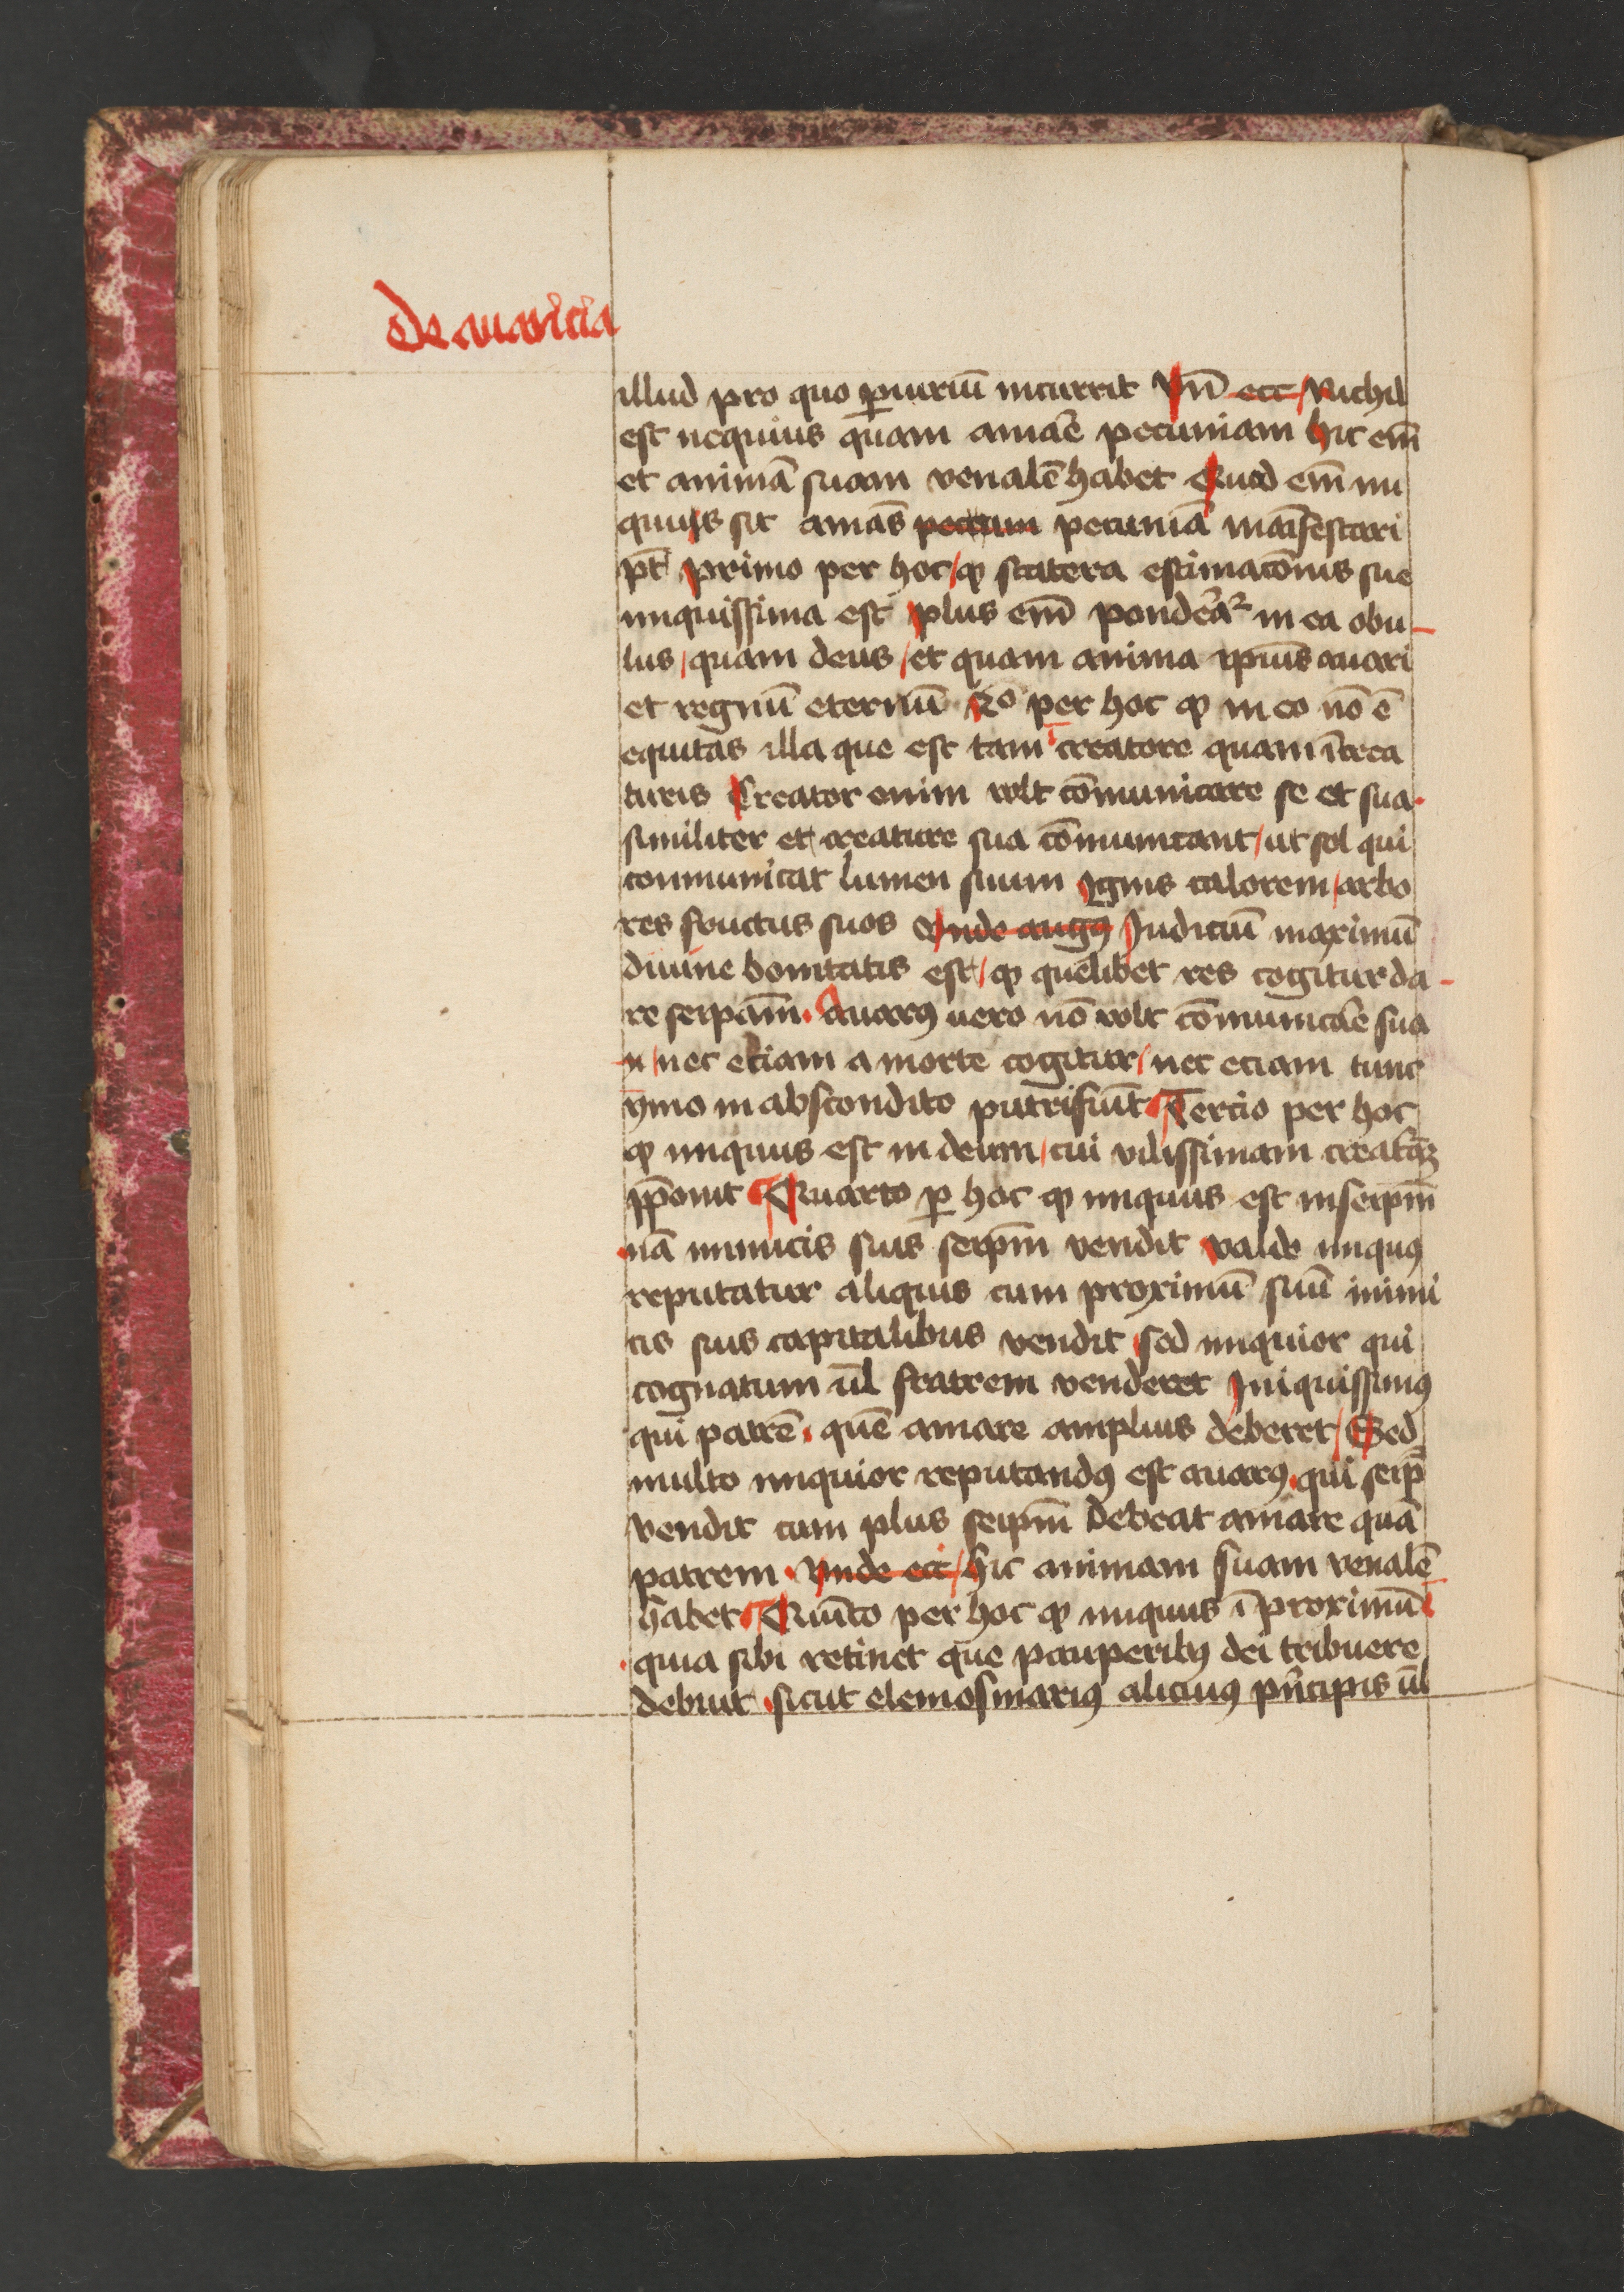 De auaricia
illud pro quo ꝑiuriū incurrit Vn̄ ecc / Nichil
est nequius quam amāe pecuniam hic em̄
et animā suam venalē habet Quod em̄ ini
quus sit amās peccun pecuniā maīfestari
pt̄ primo per hoc / ꝙ statera estimacōnis sue
iniquissima est plus em̄ ponderat᷑ in ea obu-
lus / quam deus / et quam anima ip̄ius auari
et regnū eternū 2o per hoc ꝙ in eo nō ē
equitas illa que est tam ī creatore quam ī crea
turis Creator enim volt cōmunicare se et sua.
similiter et creature sua cōmunicant / ut sol qui
communicat lumen suum Ignis calorem / arbo
res fructus suos Vnde augꝰ Iudiciū maximū
diuine bonitatis est / ꝙ quelibet res cogitur da-
re seip̄am. Auarꝰ uero nō volt cōmunicāe sua
n / nec etiam a morte cogitur / nec etiam tunc
ymo in abscondito putrefiūt Tercio per hoc
ꝙ iniquus est in deum / cui vilissimam creatꝝ
p̄ponit Quarto ꝑ hoc ꝙ iniquus est in seip̄m
nā inimicis suis seip̄m vendit valde iniquꝰ
reputatur aliquis cum proximū suū inimi
cis suis capitalibus vendit sed iniquior qui
cognatum ul̄ fratrem venderet Iniquissimꝰ
qui patrē. quē amare amplius deberet / Sed
multo iniquior reputandꝰ est auarꝰ qui seip̄
vendit cum plus seip̄m debeat amare quā
patrem. Vnde ecc / hic animam suam venalē
habet Quīto per hoc ꝙ iniquus ī proximū
quia sibi retinet que pauperibꝰ dei tribuere
debuit sicut elemosinariꝰ alicuiꝰ pͥncipis ul̄